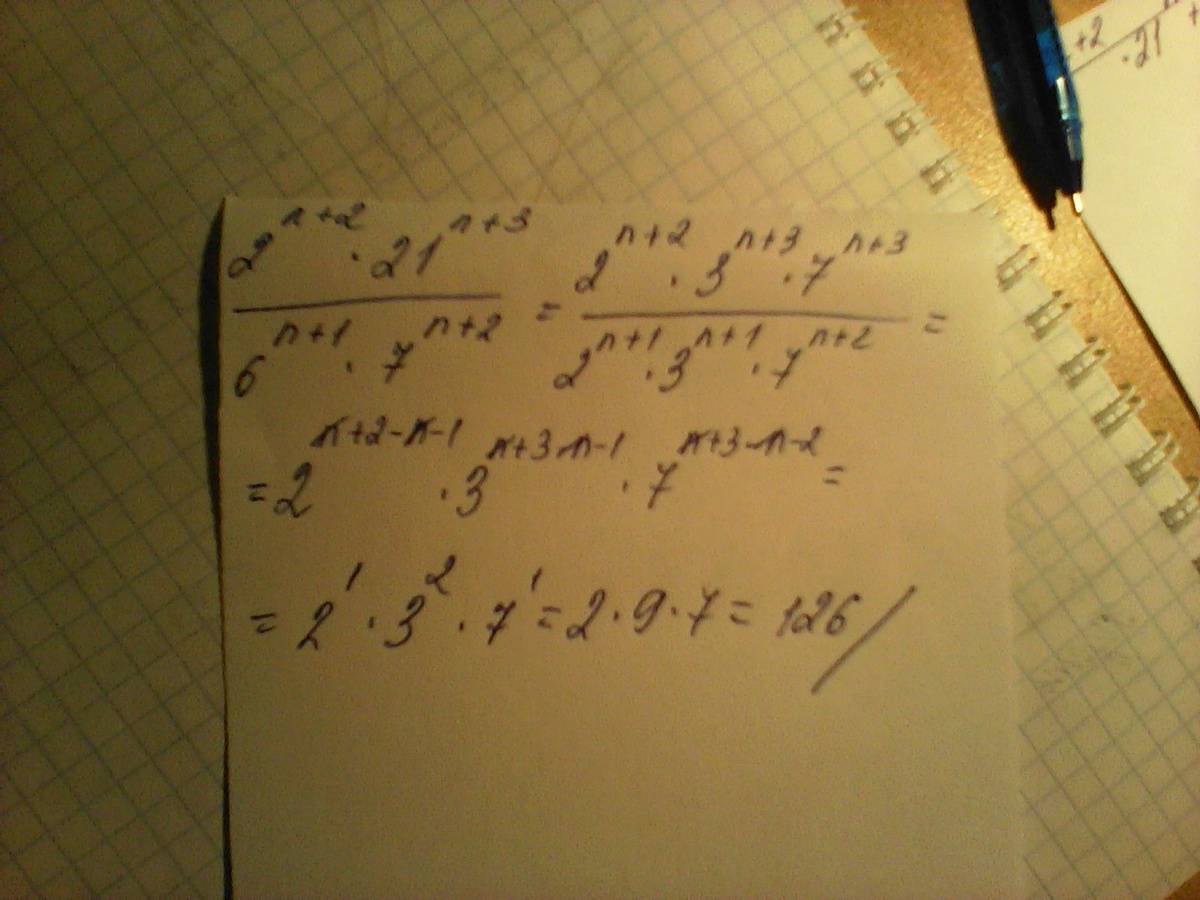 2^(n+2) · 21^(n+3) / 6^(n+1) · 7^(n+2) = 2^(n+2) · 3^(n+3) · 7^(n+3) / 2^(n+1) · 3^(n+1) · 7^(n+2) =
= 2^(n+2-n-1) · 3^(n+3-n-1) · 7^(n+3-n-2) =
= 2^1 · 3^2 · 7^1 = 2 · 9 · 7 = 126 /
+2
· 21